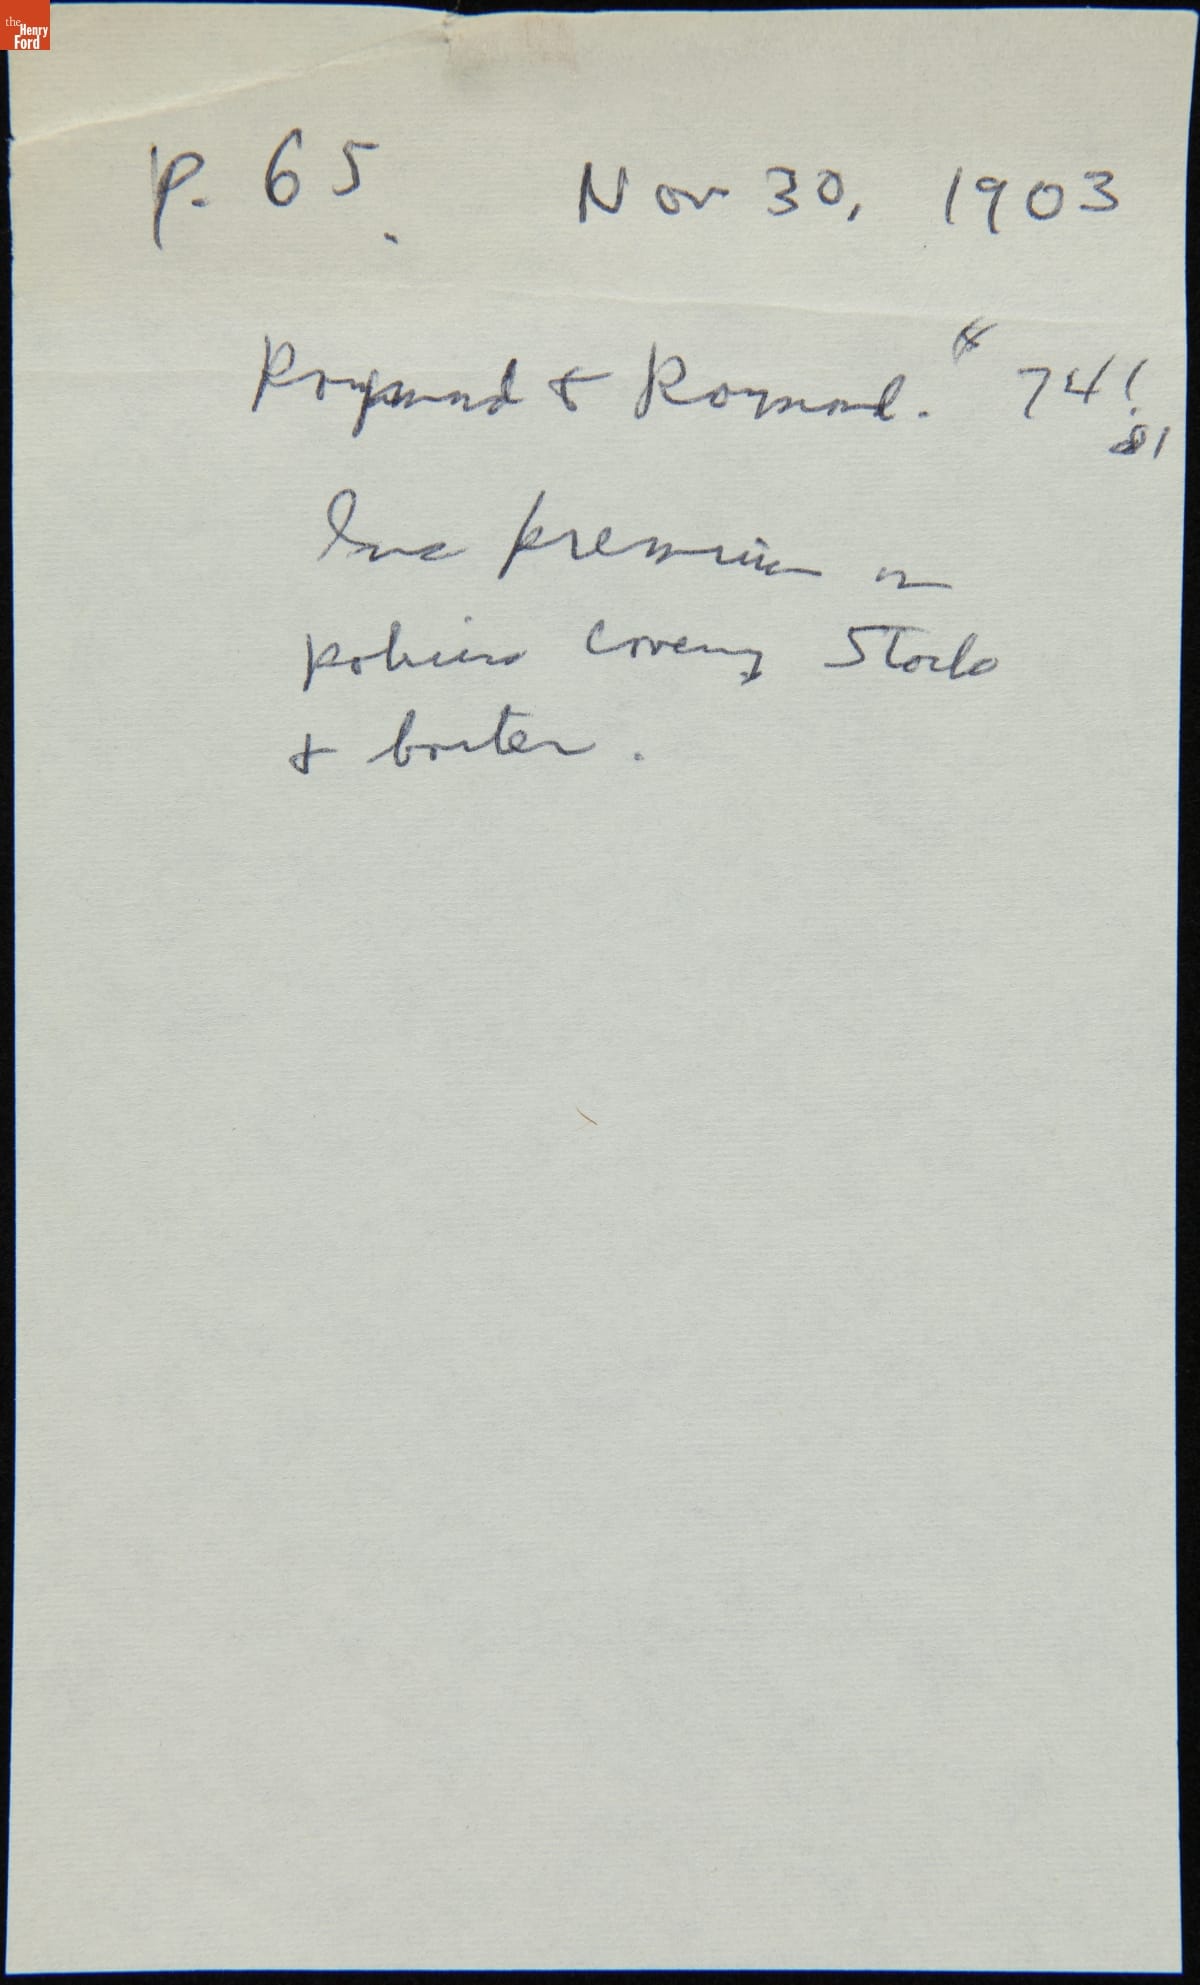 the
Henry
Ford
p. 65. Nov 30, 1903
Raymond & Raymond. 74!
81
Ins premium on
policies covering Stock
& boiler.